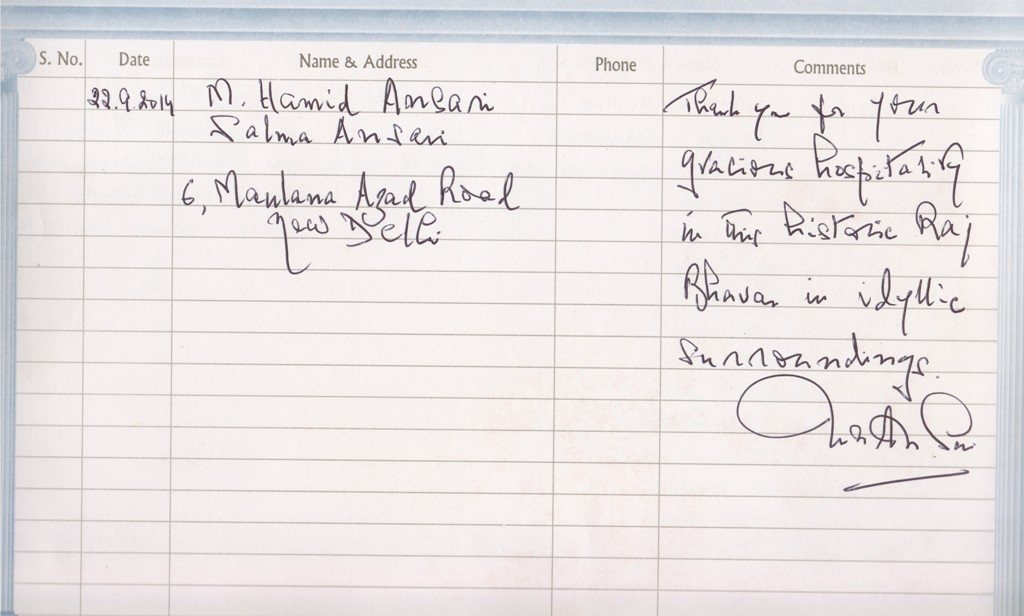 S. No. Date Name & Address Phone Comments
22.9.2014 M. Hamid Ansari
Salma Ansari
6, Maulana Azad Road
New Delhi
Thank you for your
gracious hospitality
in this historic Raj
Bhavan in idyllic
surroundings.